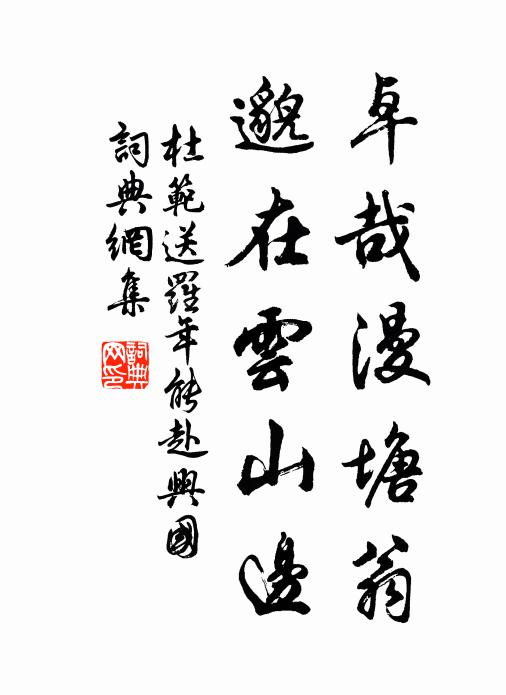 卓哉漫塘翁
邈在雲山邊
杜範送羅年能赴興國
詞典網集
詞典网印